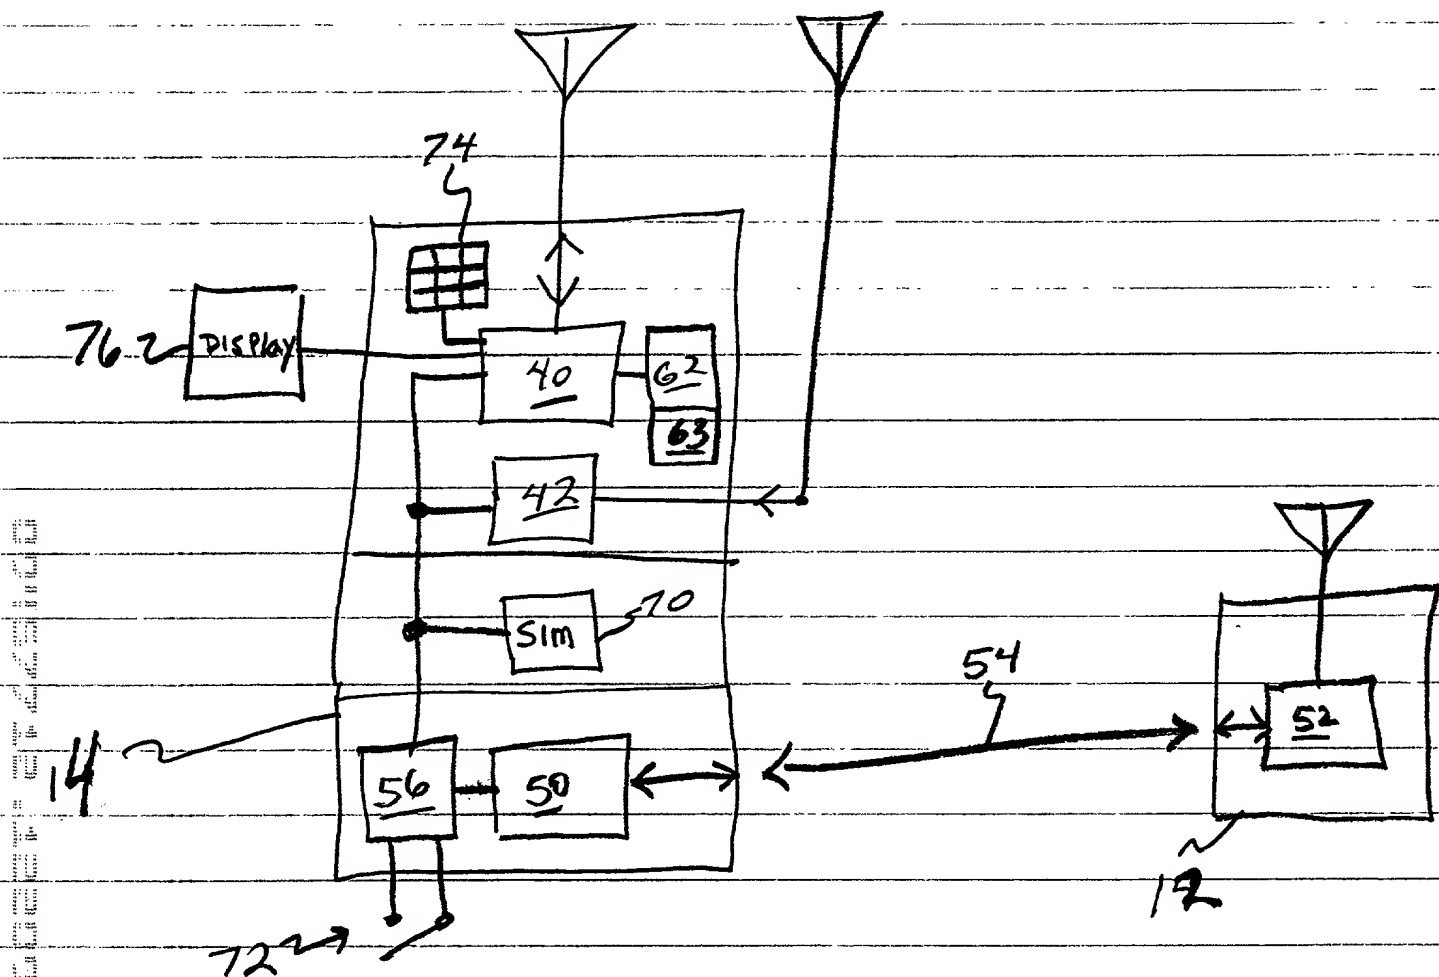 74
76
DISPlay
40
62
63
42
SIM
70
54
52
14
56
50
12
72